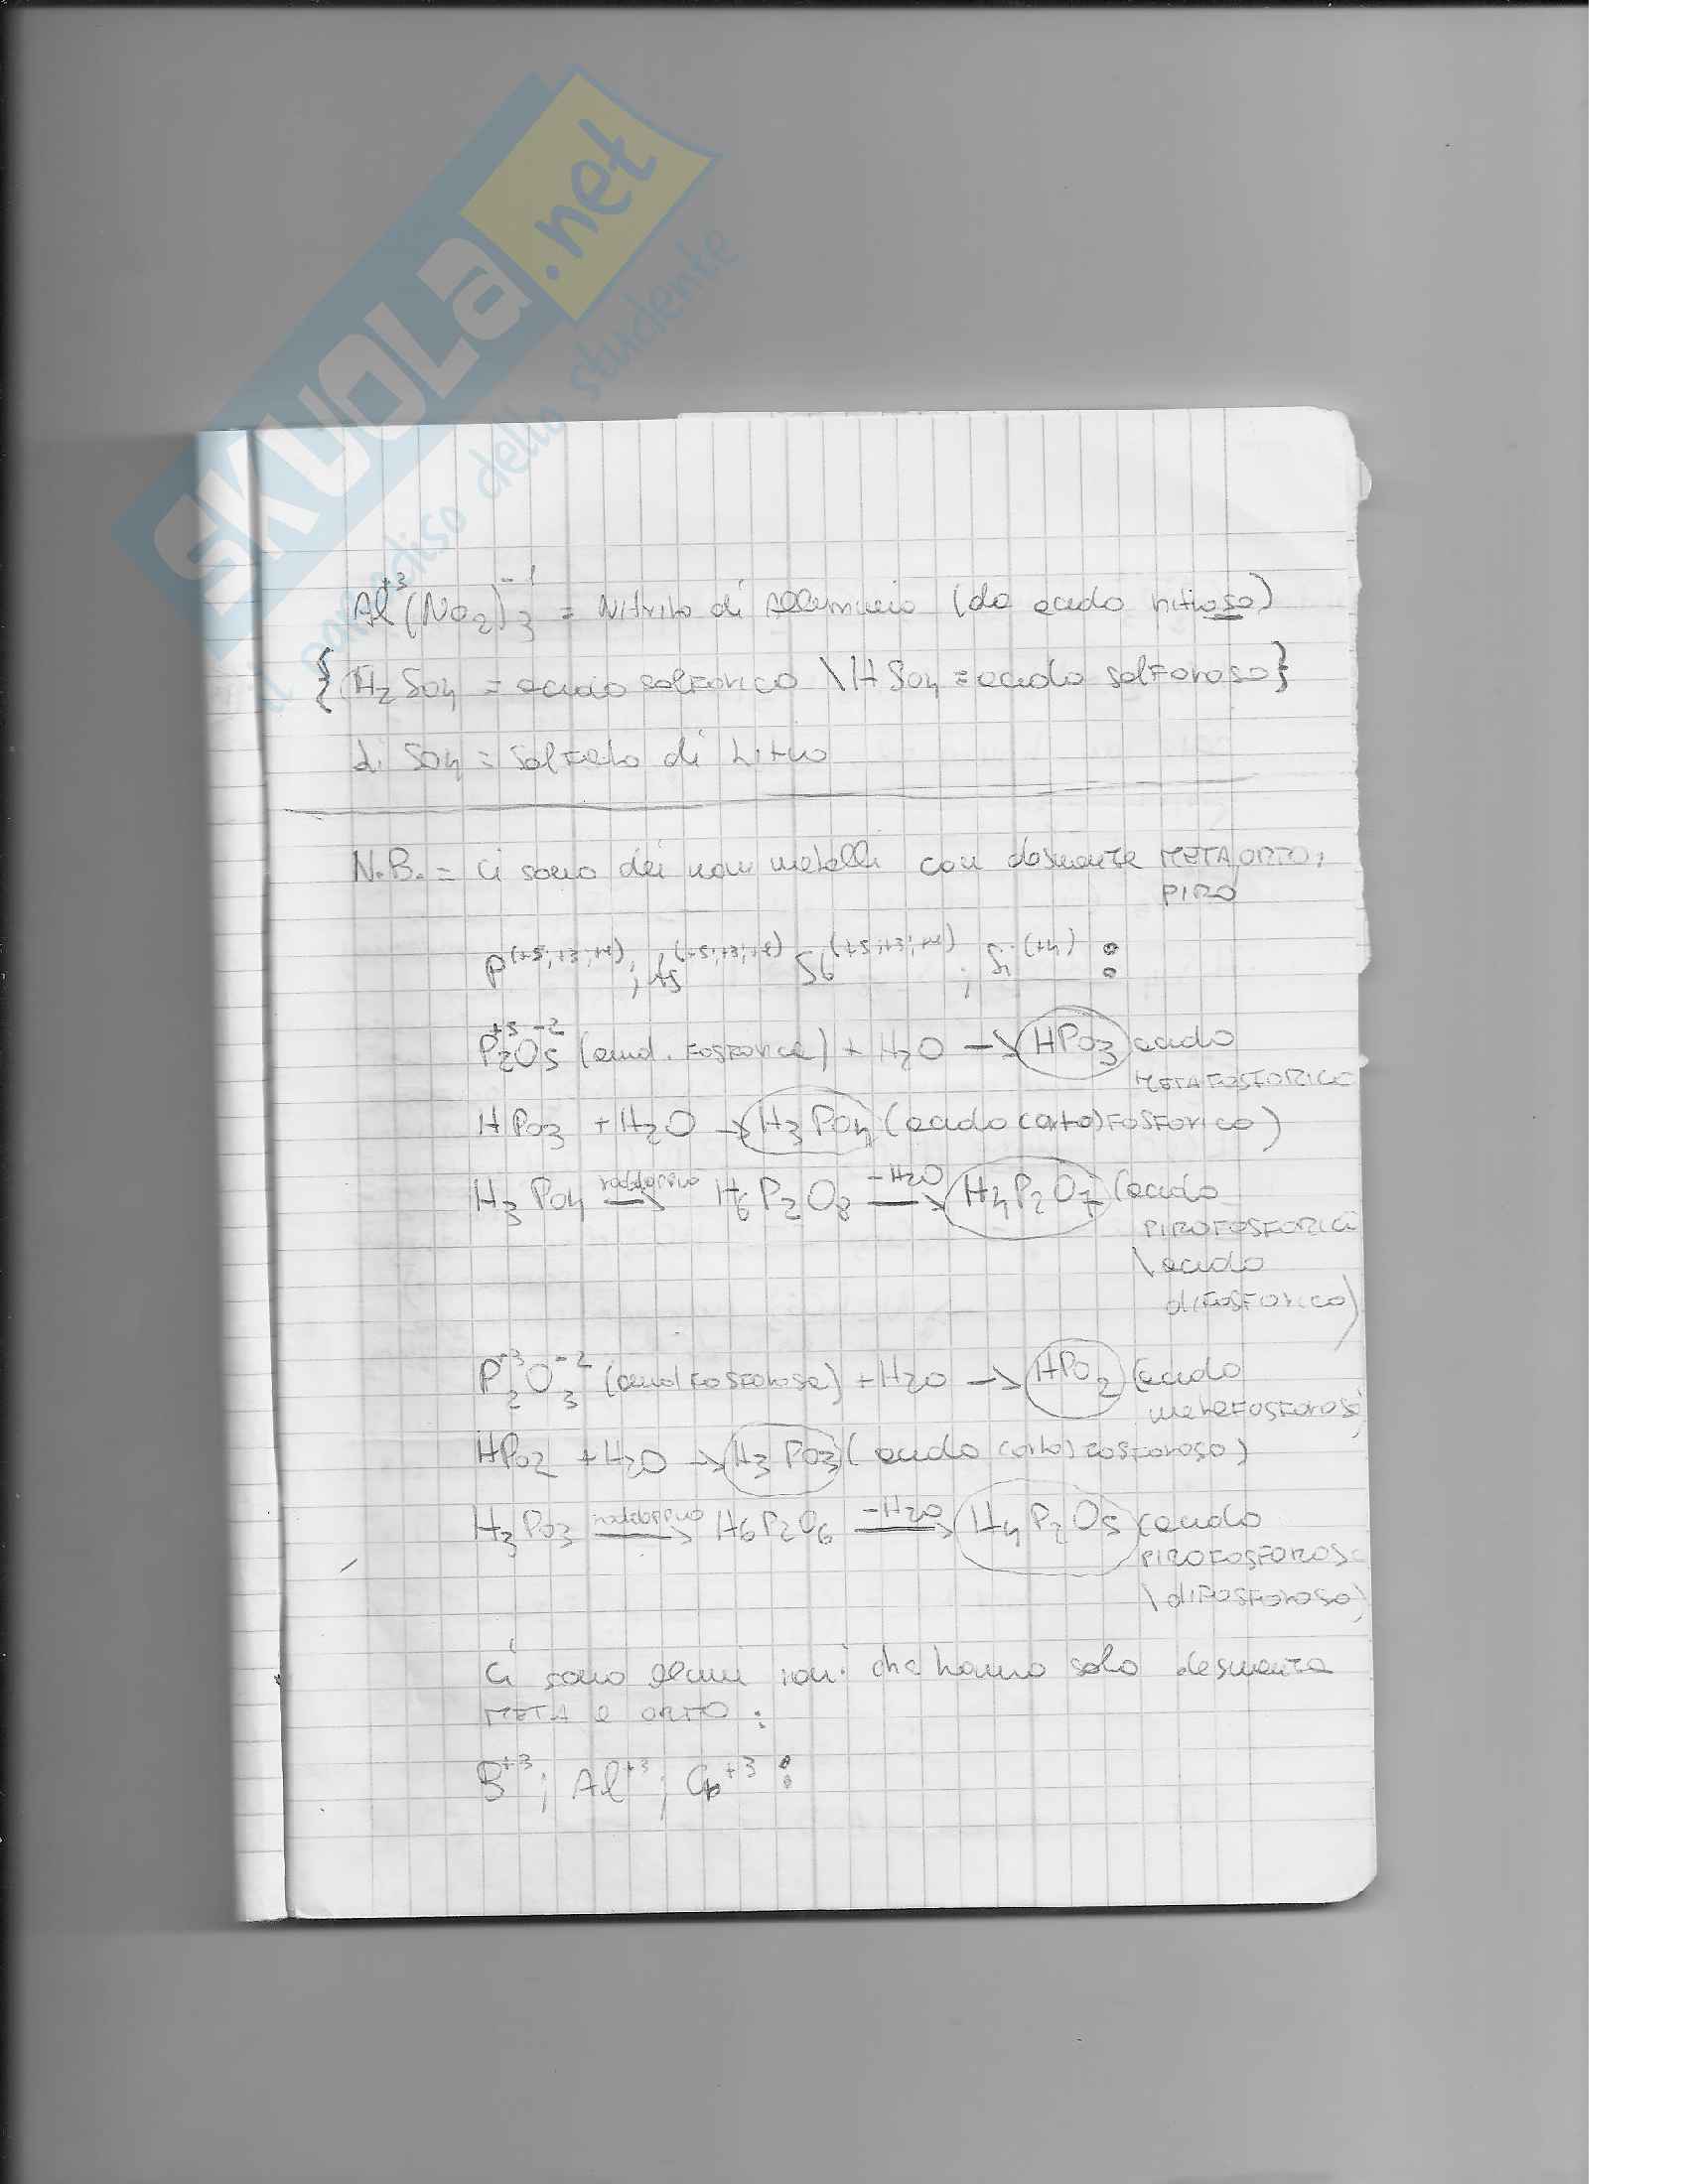 SKUOLA.net
il paradiso dello studente
Al⁺³(NO₂)₃⁻¹ = Nitrito di Alluminio (da acido nitroso)
{H₂SO₄ = acido solforico \ HSO₄ = acido solforoso}
Li SO₄ = Solfato di Litio
N.B. = Ci sono dei non metalli con desinenze META, ORTO,
PIRO
P(+5;+3;+1); As(+5;+3;+1) Sb(+5;+3;+1); Si(+4) :
P₂⁺⁵O₅⁻² (anid. fosforica) + H₂O → HPO₃ acido
METAFOSFORICO
HPO₃ + H₂O → H₃PO₄ (acido (orto)fosforico)
H₃PO₄ raddoppio → H₆P₂O₈ -H₂O → H₄P₂O₇ (acido
PIROFOSFORICO
\ acido
difosforico)
P₂⁺³O₃⁻² (anid fosforosa) + H₂O → HPO₂ (acido
metafosforoso)
HPO₂ + H₂O → H₃PO₃ (acido (orto)fosforoso)
H₃PO₃ raddoppio → H₆P₂O₆ -H₂O → H₄P₂O₅ (acido
PIROFOSFOROSO
\ difosforoso)
Ci sono alcuni ioni che hanno solo desinenza
META e ORTO :
B⁺³; Al⁺³; +3 :